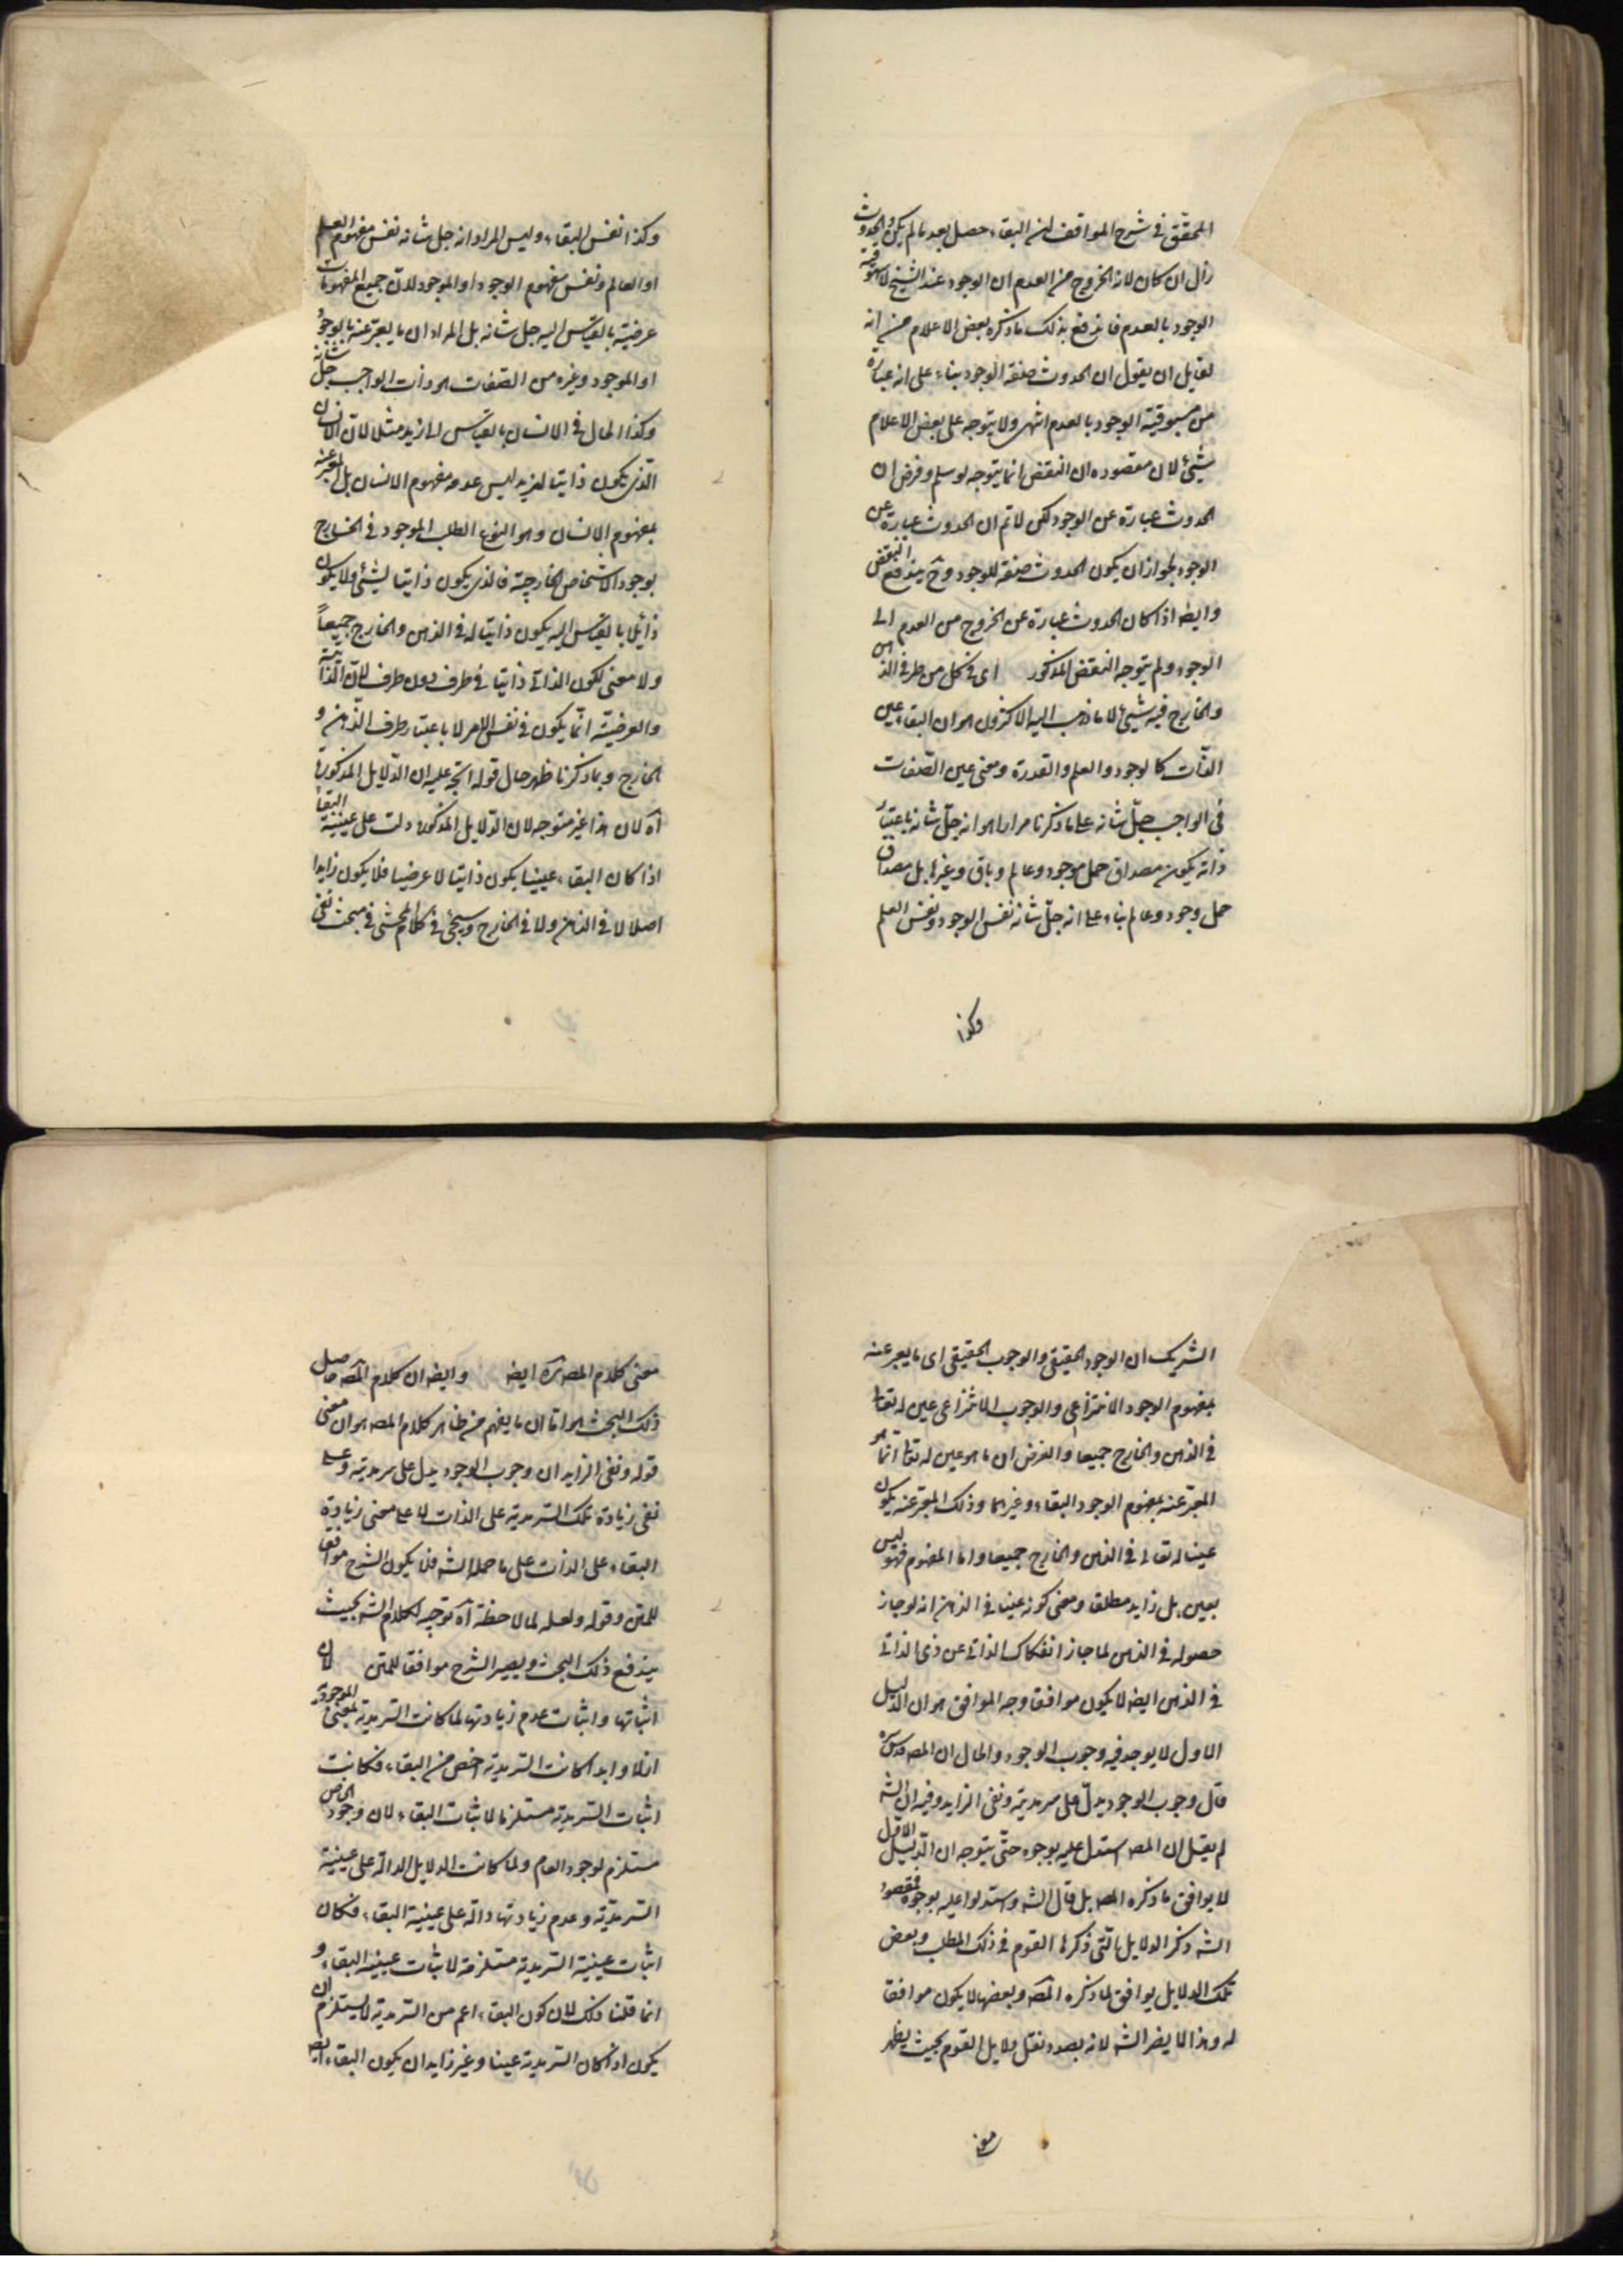 المحقق فى شرح المواقف ان البقاء حصل بعد ما لم يكن والحدوث
زال ان كان لانه الخروج من العدم ان الوجود عند الشيخ لا مسبوقية
الوجود بالعدم فاندفع بذلك ما ذكره بعض الاعلام من انه
لقايل ان يقول ان الحدوث صفة الوجود بناء على انه عبارة
من مسبوقية الوجود بالعدم انتهى ولا يتوجه على بعض الاعلام
شيئ لان مقصوده ان النقض انما يتوجه لو سلم وفرض ان
الحدوث عبارة عن الوجود لكن لا تم ان الحدوث عبارة عن
الوجود لجواز ان يكون الحدوث صفة للوجود وح يندفع النقض
وايضه اذا كان الحدوث عبارة عن الخروج من العدم الى
الوجود ولم يتوجه النقض المذكور اى فى كل من طرفى الذهن
والخارج فيه شيئ لا ما ذهب اليه الاكثرون هو ان البقاء عين
الذات كالوجود والعلم والقدرة ومعنى عين الصفات
فى الواجب جل شانه على ما ذكرنا مرارا هو انه جل شانه باعتبار
ذاته يكون مصداق حمل موجود وعالم وباق وغيرها بل مصداق
حمل وجود وعالم بناء على انه جل شانه نفس الوجود ونفس العلم
وكذا
وكذا نفس البقاء وليس المراد انه جل شانه نفس مفهوم العلم
او العالم ونفس مفهوم الوجود او الموجود لان جميع المفهومات
عرضية بالقياس اليه جل شانه بل المراد ان ما يعبر عنه بالوجود
او الموجود وغيره من الصفات هو ذات الواجب جل شانه
وكذا الحال فى الانسان بالقياس الى زيد مثلا لان الانسان
الذى يكون ذاتيا لزيد ليس هو مفهوم الانسان بل المعبر عنه
بمفهوم الانسان وهو النوع الموجود فى الخارج
بوجود الاشخاص الخارجية فالذى يكون ذاتيا لشيئ ولا يكون
زائلا بالقياس اليه يكون ذاتيا له فى الذهن والخارج جميعاً
ولا معنى لكون الذاتى ذاتيا فى طرف دون طرف لان الذاتية
والعرضية انما يكون فى نفس الامر لا باعتبار طرف الذهن و
الخارج وبما ذكرنا ظهر حال قوله اتجه عليه ان الدلايل المذكورة
آه لان هذا غير متوجه لان الدلايل المذكورة دلت على عينية البقا
اذا كان البقاء عينيا يكون ذاتيا لا عرضيا فلا يكون زايدا
اصلا لا فى الذهن ولا فى الخارج وسيجئ فى كلام المحشى فى مبحث نفى
الشريك ان الوجود الحقيقى والوجوب الحقيقى اى ما يعبر عنه
بمفهوم الوجود الانتزاعى والوجوب الانتزاعى عين له تعالى
فى الذهن والخارج جميعا والغرض ان ما هو عين له تعالى انما هو
المعبر عنه بمفهوم الوجود البقاء وغيرهما وذلك المعبر عنه يكون
عينا له تعالى فى الذهن والخارج جميعا واما المفهوم فهو ليس
بعين بل زايد مطلقا ومعنى كونه عينا فى الذهن انه لو جاز
حصوله فى الذهن لما جاز انفكاك الذاتى عن ذى الذاتى
فى الذهن ايضه لا يكون موافقا وجه الموافق هو ان الدليل
الاول لا يوجد فيه وجوب الوجود والحال ان المصه قدس سره
قال وجوب الوجود يدل على سرمديته ونفى الزايد وفيه ان الشه
لم يقل ان المصه استدل عليه بوجوه حتى يتوجه ان الدليل الاول
لا يوافق ما ذكره المصه بل قال الشه واستدلوا عليه بوجوه فمقصود
الشه ذكر الدلايل التى ذكرها القوم فى ذلك المطلب وبعض
تلك الدلايل يوافق لما ذكره المصه وبعضها لا يكون موافقا
له وهذا لا يضر الشه لانه بصدد نقل دلايل القوم بحيث يظهر
معنى
معنى كلام المصه ره ايضه وايضه ان كلام المصه حاصل
ذلك البحث هو اما ان ما يفهم من ظاهر كلام المصه هو ان معنى
قوله ونفى الزايد ان وجوب الوجود يدل على سرمديته وعلى
نفى زيادة تلك السرمدية على الذات لا على معنى زيادة
البقاء على الذات على ما حمله الشه فلا يكون الشرح موافقا
للمتن وقوله ولعله لملاحظة آه توجيه لكلام الشه بحيث
يندفع ذلك البحث ويصير الشرح موافقا للمتن لان
اثباتها واثبات عدم زيادتها لما كانت السرمدية بمعنى الموجودية
ازلا وابدا كانت السرمدية اخص من البقاء فكانت
اثبات السرمدية مستلزما لاثبات البقاء لان وجود الخاص
مستلزم لوجود العام ولما كانت الدلايل الدالة على عينية
السرمدية وعدم زيادتها دالة على عينية البقاء فكان
اثبات عينية السرمدية مستلزمة لاثبات عينية البقاء و
انما قلنا ذلك لان كون البقاء اعم من السرمدية لا يستلزم ان
يكون اذا كان السرمدية عينا وغير زايد ان يكون البقاء ايضه